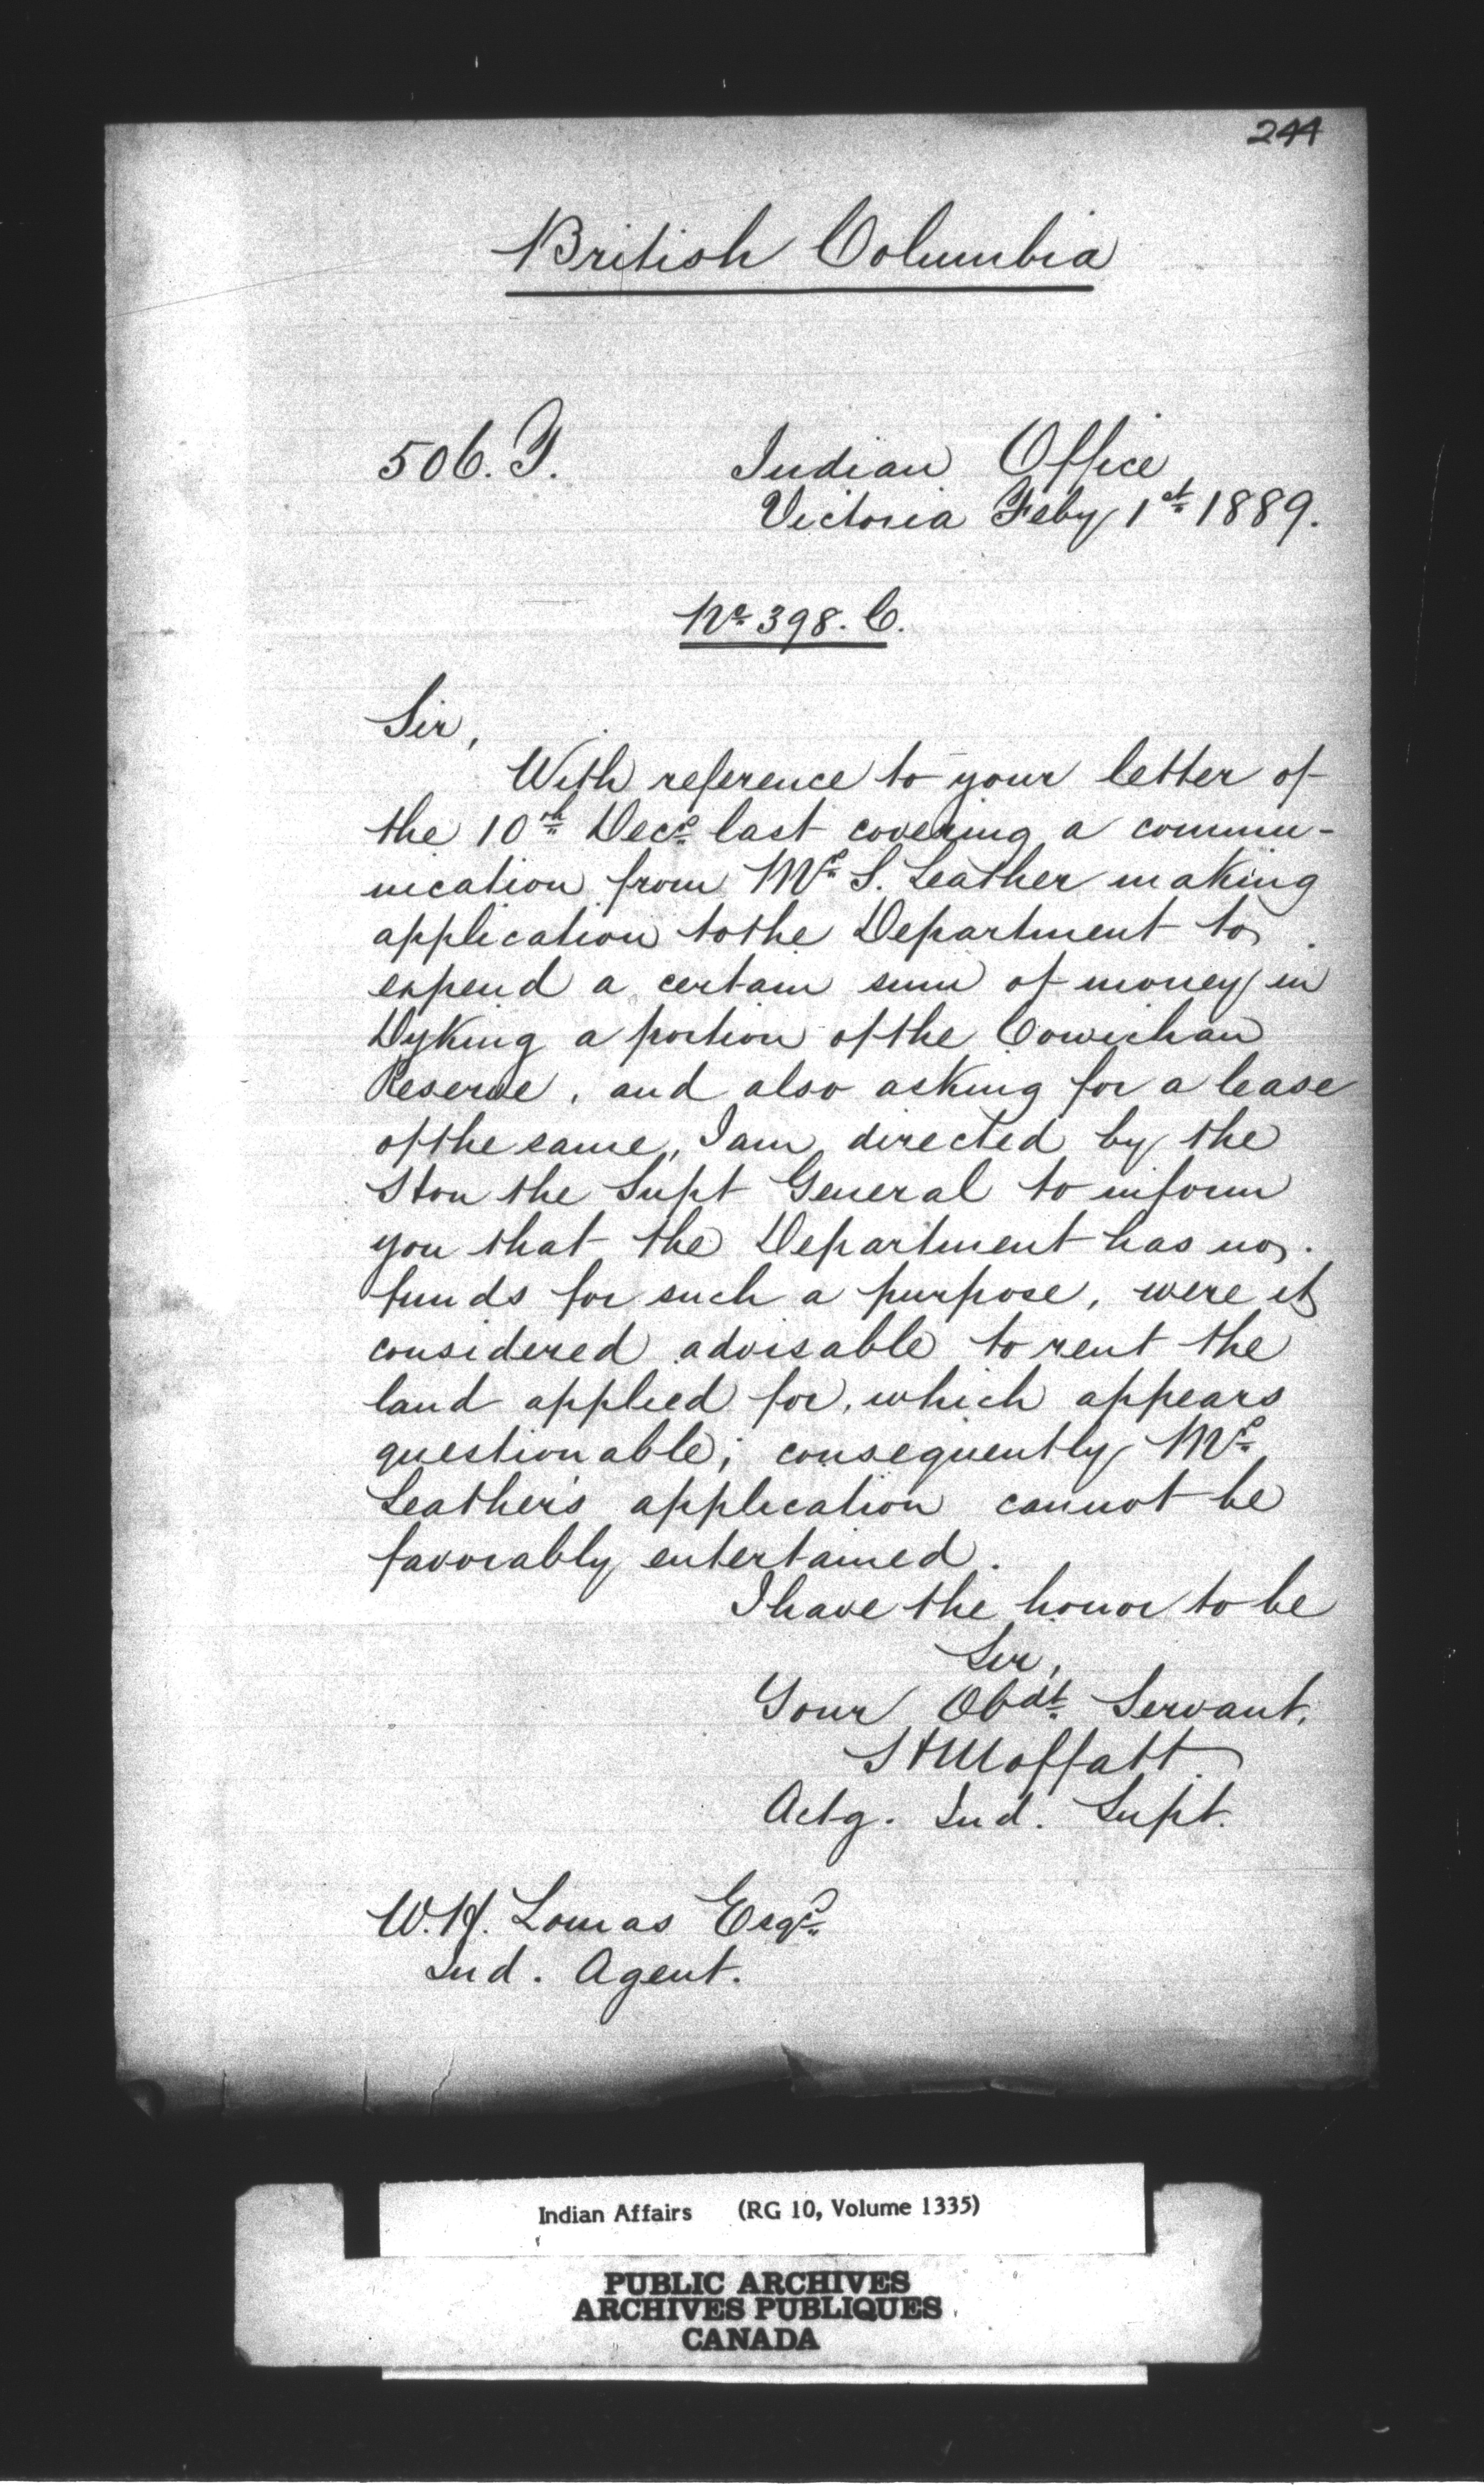 244
British Columbia
506. F. Indian Office
Victoria Feby 1st 1889.
No 398. C.
Sir,
With reference to your letter of
the 10th Decr last covering a commu-
nication from Mr S. Leather making
application to the Department to
expend a certain sum of money in
Dyking a portion of the Cowichan
Reserve, and also asking for a lease
of the same, I am directed by the
Hon the Supt General to inform
you that the Department has no
funds for such a purpose, were it
considered advisable to rent the
land applied for, which appears
questionable; consequently Mr
Leather's application cannot be
favorably entertained.
I have the honor to be
Sir,
Your Obdt Servant,
H Moffatt
Actg. Ind. Supt.
W.H. Lomas Esqr
Ind. Agent.
Indian Affairs (RG 10, Volume 1335)
PUBLIC ARCHIVES
ARCHIVES PUBLIQUES
CANADA